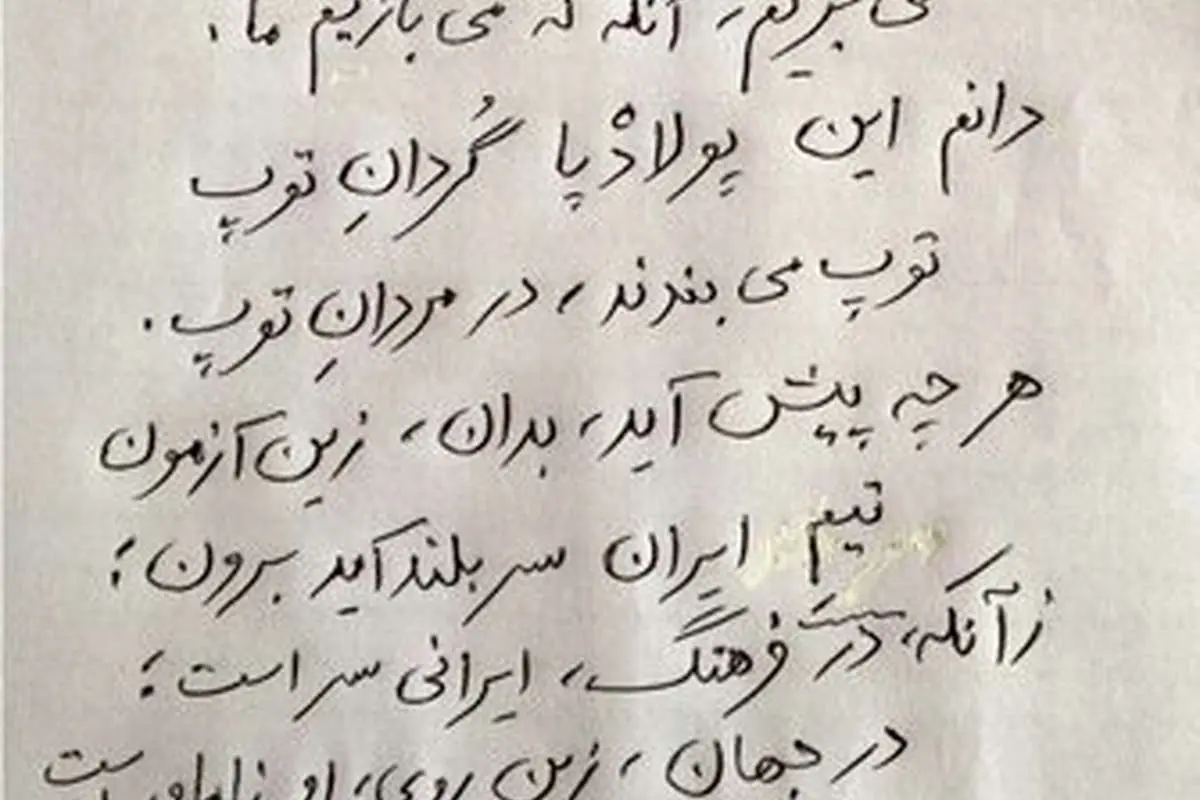 می بریم، آنگه که می بازیم ما.
دانم این پولادْپا گُردانِ توپ
توپ می بندند، در مردانِ توپ.
هر چه پیش آید، بدان، زین آزمون
تیم ایران سربلند آید برون؛
زآنکه، در فرهنگ، ایرانی سر است؛
در جهان، زین روی، او